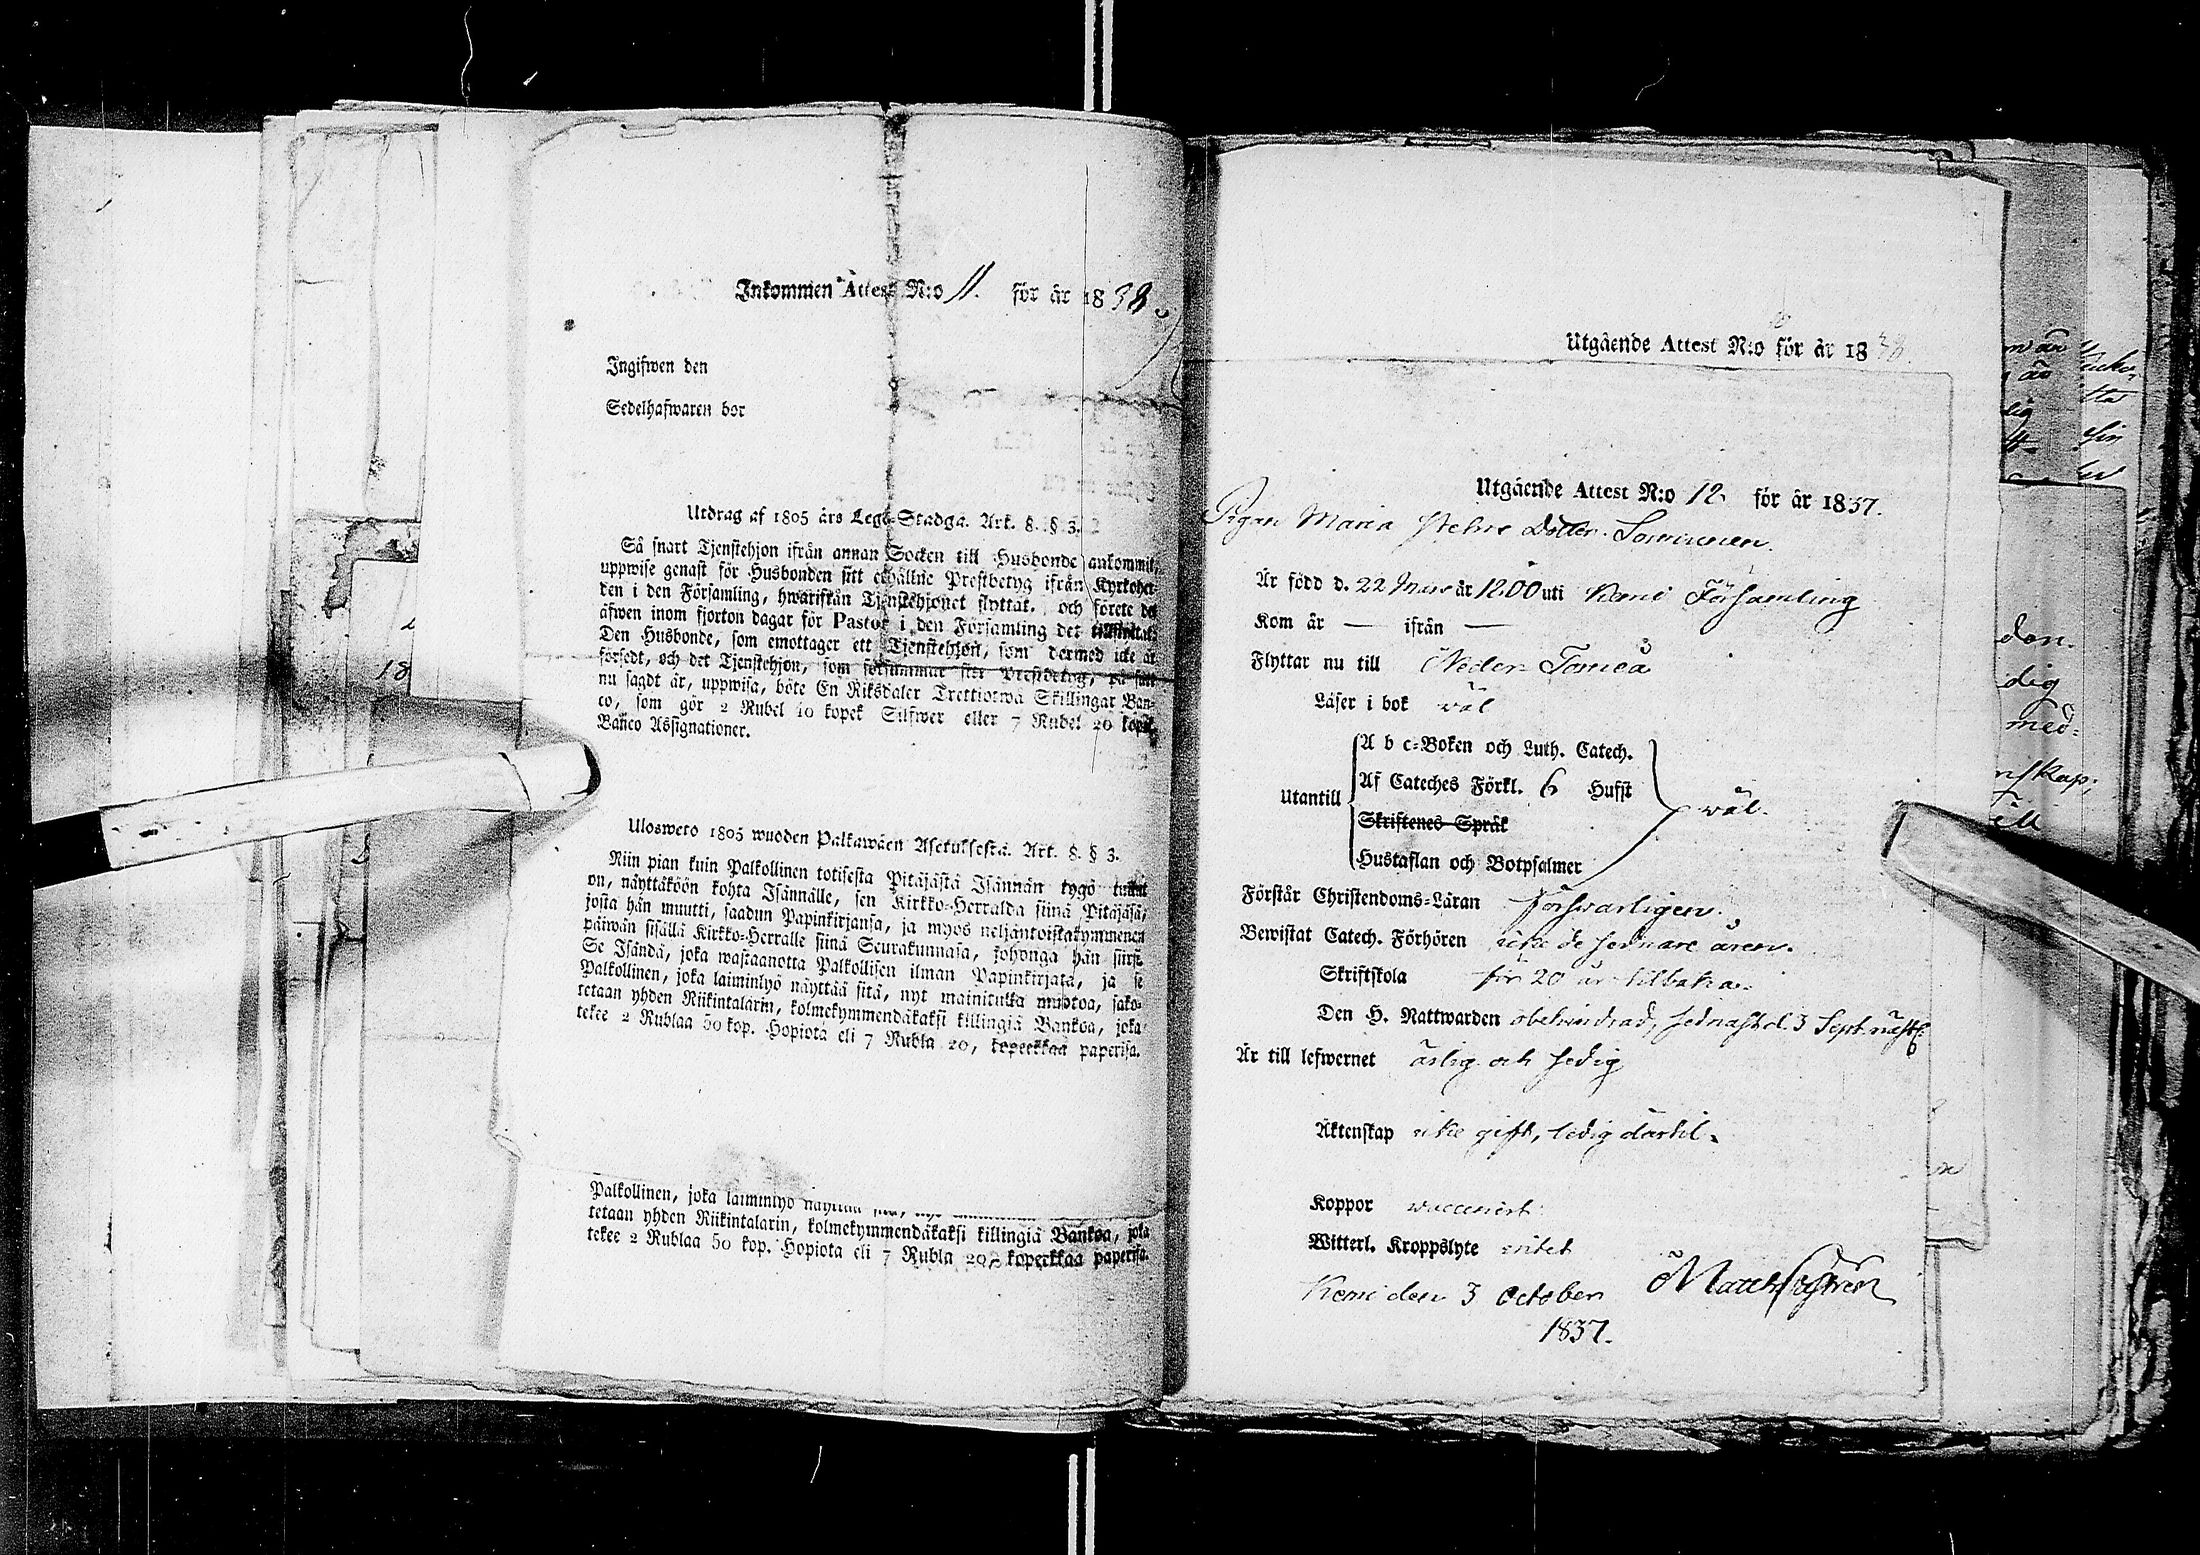 Inkommen Attest N:o 11. för år 1838.
Ingifwen den
Sedelhafwaren bor
Utdrag af 1805 års Lego-Stadga. Art. 8. § 3.
Så snart Tjenstehjon ifrån annan Socken till Husbonde ankommit,
uppwise genast för Husbonden sitt erhållne Prestbetyg ifrån Kyrkoher-
den i den Församling, hwarifrån Tjenstehjonet flyttat, och förete det
äfwen inom fjorton dagar för Pastor i den Församling det
Den Husbonde, som emottager ett Tjenstehjon, som dermed icke är
försedt, och det Tjenstehjon, som försummar sitt Prestbetyg, på sätt
nu sagdt är, uppwisa, böte En Riksdaler Trettiotwå Skillingar Ban-
co, som gör 2 Rubel 10 kopek Silfwer eller 7 Rubel 20 kopek
Banco Assignationer.
Ulosweto 1805 wuoden Palkawäen Asetuksesta. Art. 8. § 3.
Niin pian kuin Palkollinen toisesta Pitäjästä Isännän tygö tullut
on, näyttäköön kohta Isännälle, sen Kirkko-Herralda siinä Pitäjäsä,
josta hän muutti, saadun Papinkirjansa, ja myös neljäntoistakymmenen
päiwän sisällä Kirkko-Herralle siinä Seurakunnasa, johonga hän siirsi.
Se Isändä, joka wastaanotta Palkollisen ilman Papinkirjata, ja se
Palkollinen, joka laiminlyö näyttää sitä, nyt mainitulla muotoa, sako-
tetaan yhden Riikintalarin, kolmekymmendäkaksi killingiä Bankoa, joka
tekee 2 Rublaa 50 kop. Hopiota eli 7 Rubla 20, kopeekkaa paperisa.
Palkollinen, joka laiminlyö näyttää
tetaan yhden Riikintalarin, kolmekymmendäkaksi killingiä Bankoa, joka
tekee 2 Rublaa 50 kop. Hopiota eli 7 Rubla 20, kopeekkaa paperisa.
18
Utgående Attest N:o för år 1838.
Utgående Attest N:o 12 för år 1837.
Pigan Maria Dotter
Är född d. 22 Mars år 1800 uti Kemi Församling
Kom år — ifrån —
Flyttar nu till Neder Torneå
Läser i bok wäl
Utantill
A b c-Boken och Luth. Catech.
Af Cateches Förkl. 6 Hufst
Skriftenes Språk
Hustaflan och Botpsalmer
wäl.
Förstår Christendoms-Läran förswarligen.
Bewistat Catech. Förhören icke de sednare åren.
Skriftskola för 20 år tillbaka.
Den H. Nattwarden obehindrad, sednast d. 3 Sept. nästl.
Är till lefwernet ärlig och sedig
Äktenskap icke gift, ledig därtil.
Koppor waccinerat
Witterl. Kroppslyte intet
Kemi den 3 October
1837.
don.
dig
med-